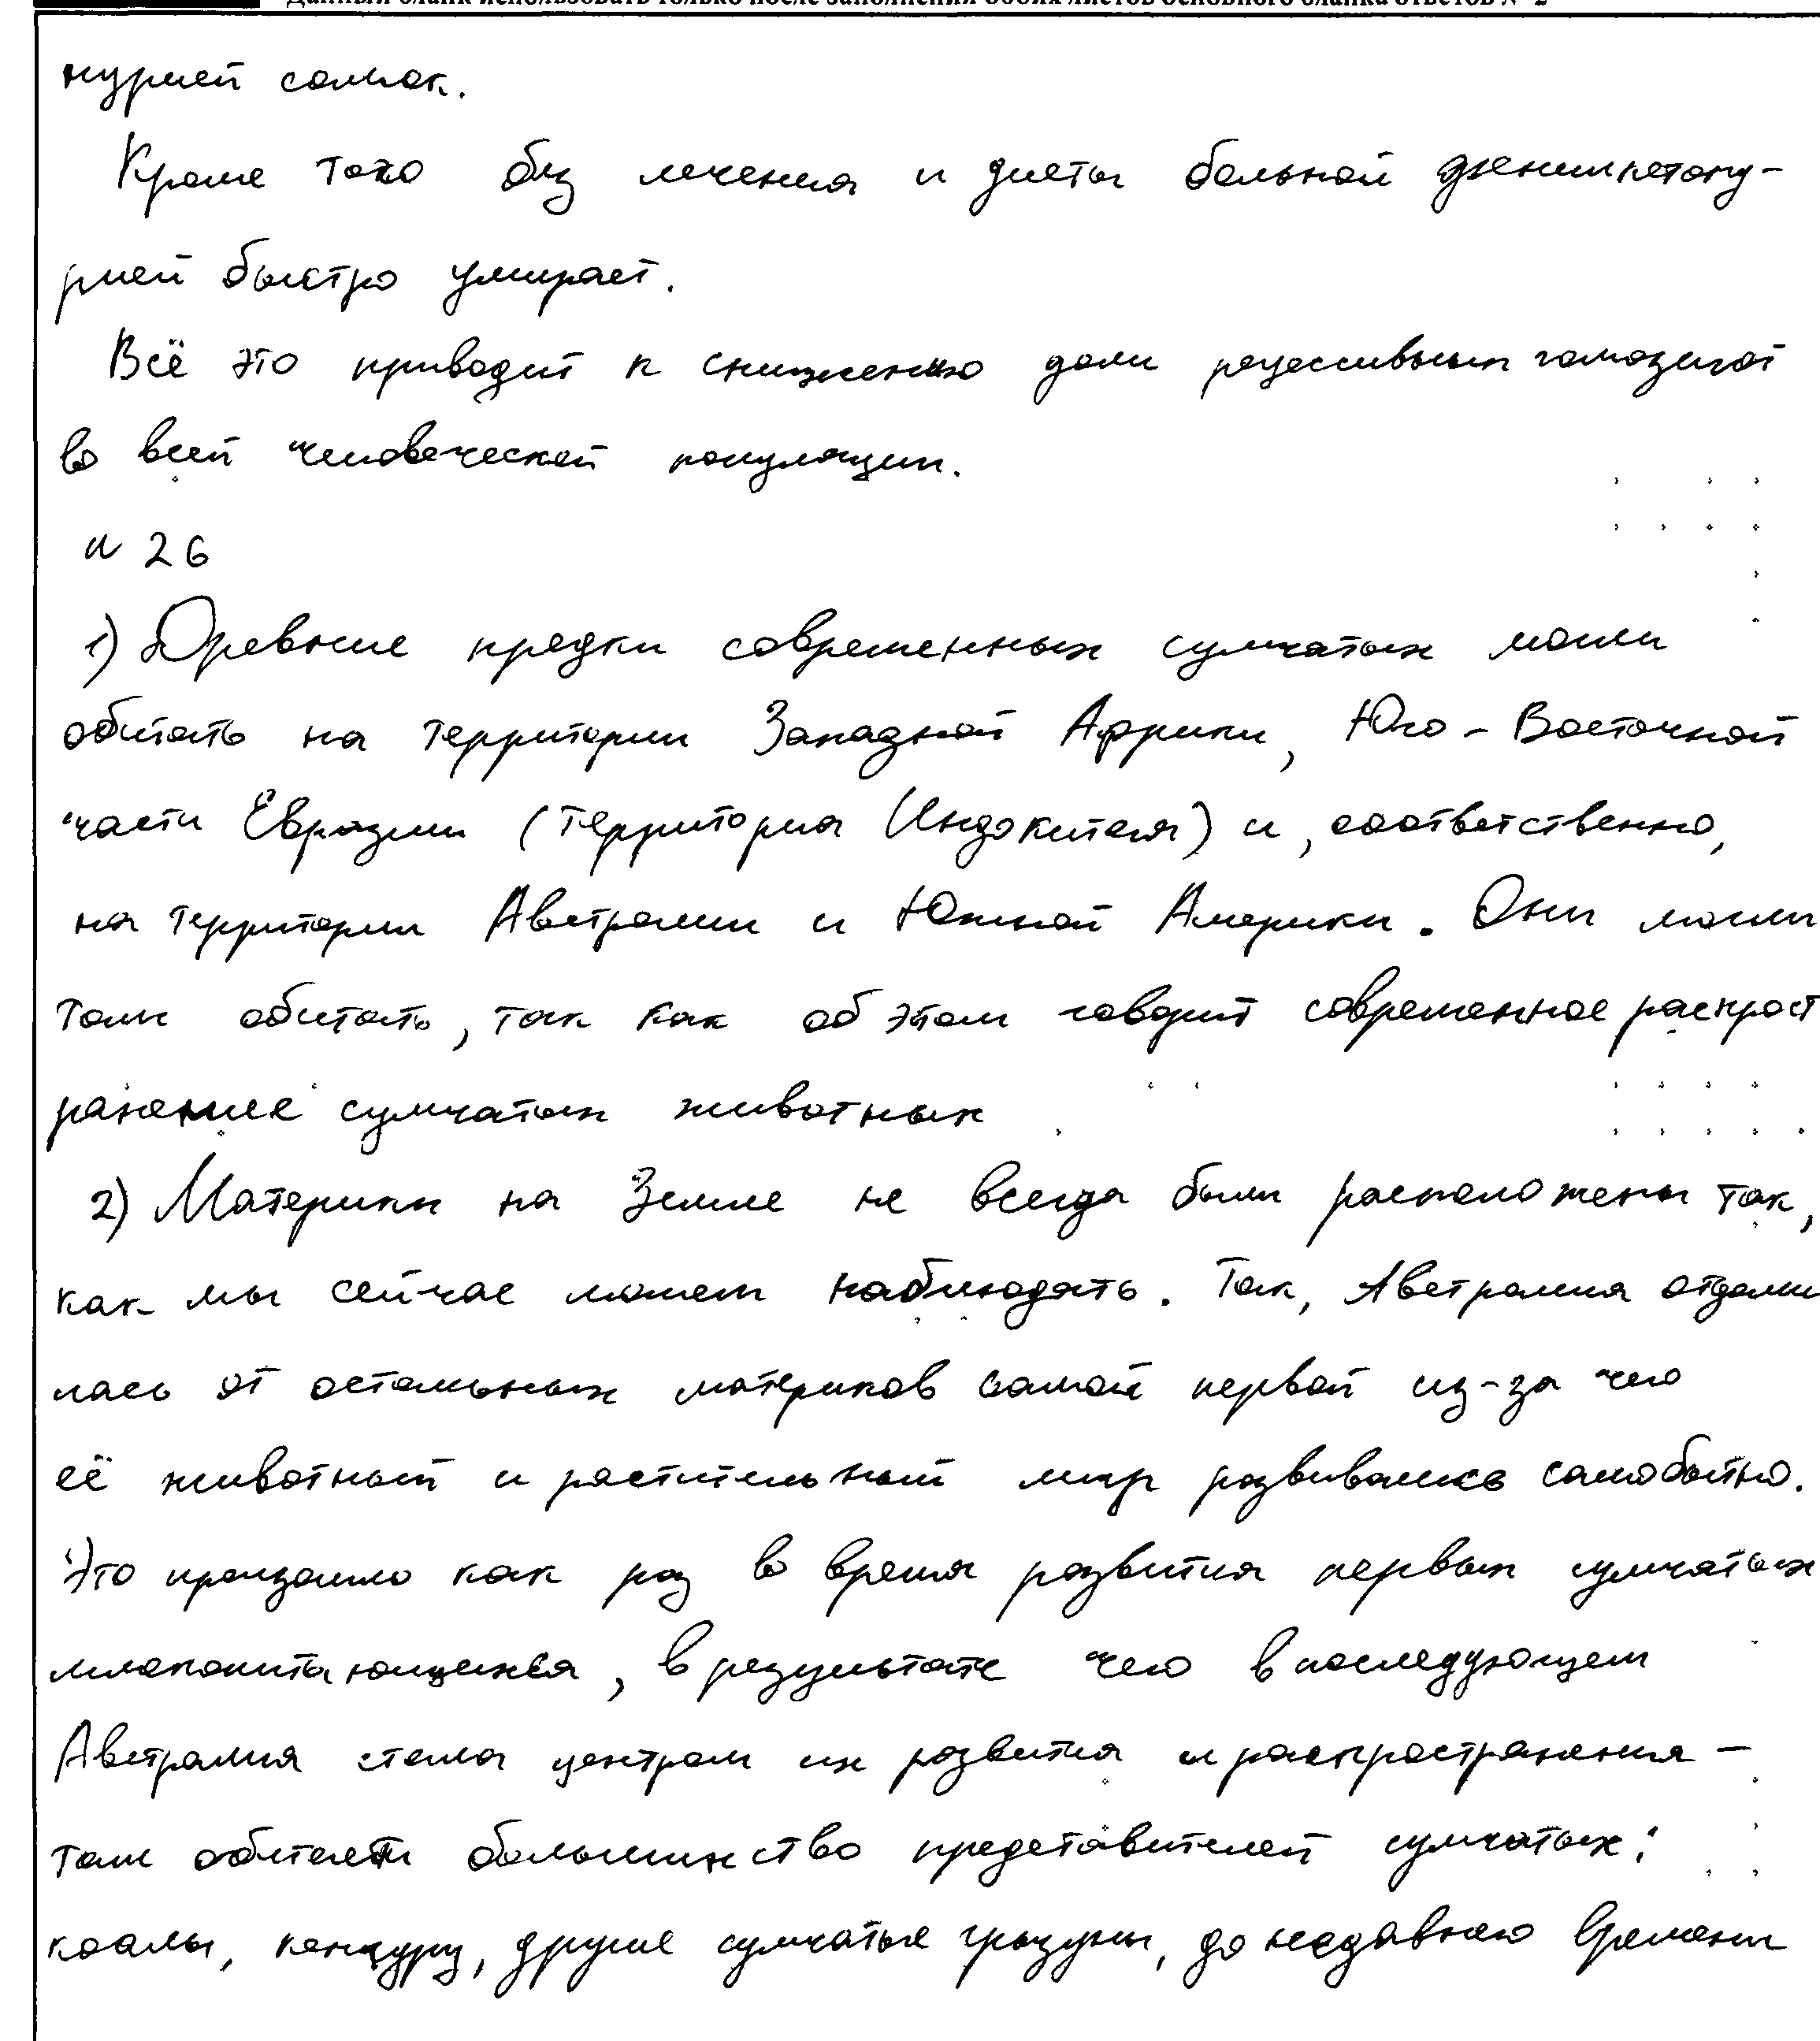 Данный бланк использовать только после заполнения обоих листов основного бланка ответов № 2
нурией самок.
Кроме того без лечения и диеты больной фенилкетону-
рией быстро умирает.
Всё это приводит к снижению доли рецессивных гомозигот
во всей человеческой популяции.
N 26
1) Древние предки современных сумчатых могли
обитать на территории Западной Африки, Юго-Восточной
части Евразии (территория Индокитая) и, соответственно,
на территории Австралии и Южной Америки. Они могли
там обитать, так как об этом говорит современное распрост
ранение сумчатых животных
2) Материки на Земле не всегда были расположены так,
как мы сейчас можем наблюдать. Так, Австралия отдели
лась от остальных материков самой первой из-за чего
её животный и растительный мир развивались самобытно.
Это произошло как раз во время развития первых сумчатых
млекопитающихся, в результате чего в последующем
Австралия стала центром их развития и распространения -
там обитает большинство представителей сумчатых:
коалы, кенгуру, другие сумчатые грызуны, до недавнего времени